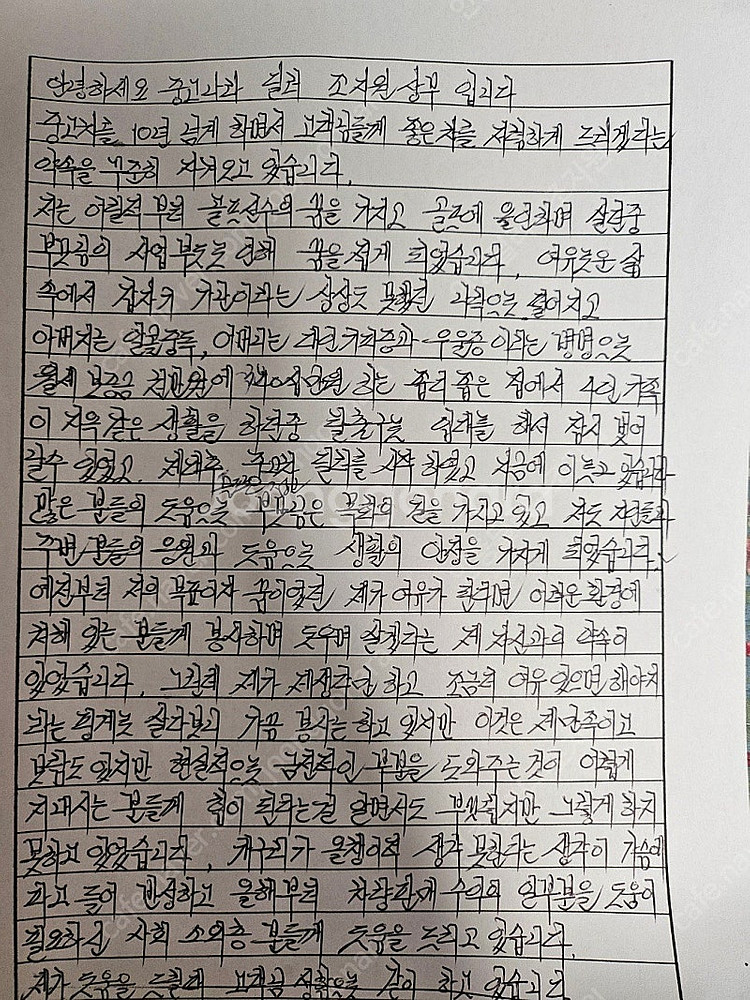 안녕하세요 중고나라 딜러 조지원 상무 입니다
중고차를 10년 넘게 하면서 고객님들께 좋은차를 저렴하게 드리겠다는
약속을 꾸준히 지켜오고 있습니다.
저는 어릴적부터 골프선수의 꿈을 가지고 골프에 올인하며 살던중
부모님의 사업부도로 인해 꿈을 접게 되었습니다, 여유로운 삶
속에서 갑자기 가난이라는 상상도 못했던 나락으로 떨어지고
아버지는 알콜중독, 어머니는 대인기피증과 우울증 이라는 병명으로
월세 보증금 천만원에 하는 좁디 좁은 집에서 4인 가족
이 지옥같은 생활을 하던중 탈출구로 입대를 해서 잠시 벗어
날수 있었고 제대후 중고차 딜러를 시작 하였고 지금에 이르고 있습니다
많은 분들의 도움으로 부모님은 목회의 일을 가지고 있고 저도 지인들과
주변분들의 응원과 도움으로 생활의 안정을 가지게 되었습니다.
예전부터 저의 목표이자 꿈이였던 제가 여유가 된다면 어려운 환경에
처해 있는 분들께 봉사하며 도우며 살겠다는 제 자신과의 약속이
있었습니다. 그런데 제가 제생각만 하고 조금더 여유 있으면 해야지
라는 핑계로 살다보니 가끔 봉사는 하고 있지만 이것은 제만족이고
보람도 있지만 현실적으로 금전적인 부분을 도와주는 것이 어렵게
지내시는 분들께 힘이 된다는걸 알면서도 부끄럽지만 그렇게 하지
못하고 있었습니다, 개구리가 올챙이적 생각 못한다는 생각이 가슴에
파고 들어 반성하고 올해부터 차량판매 수익의 일부분을 도움이
필요하신 사회 소외층 분들께 도움을 드리고 있습니다.
제가 도움을 드릴때 고객님 성함으로 같이 하고 있습니다